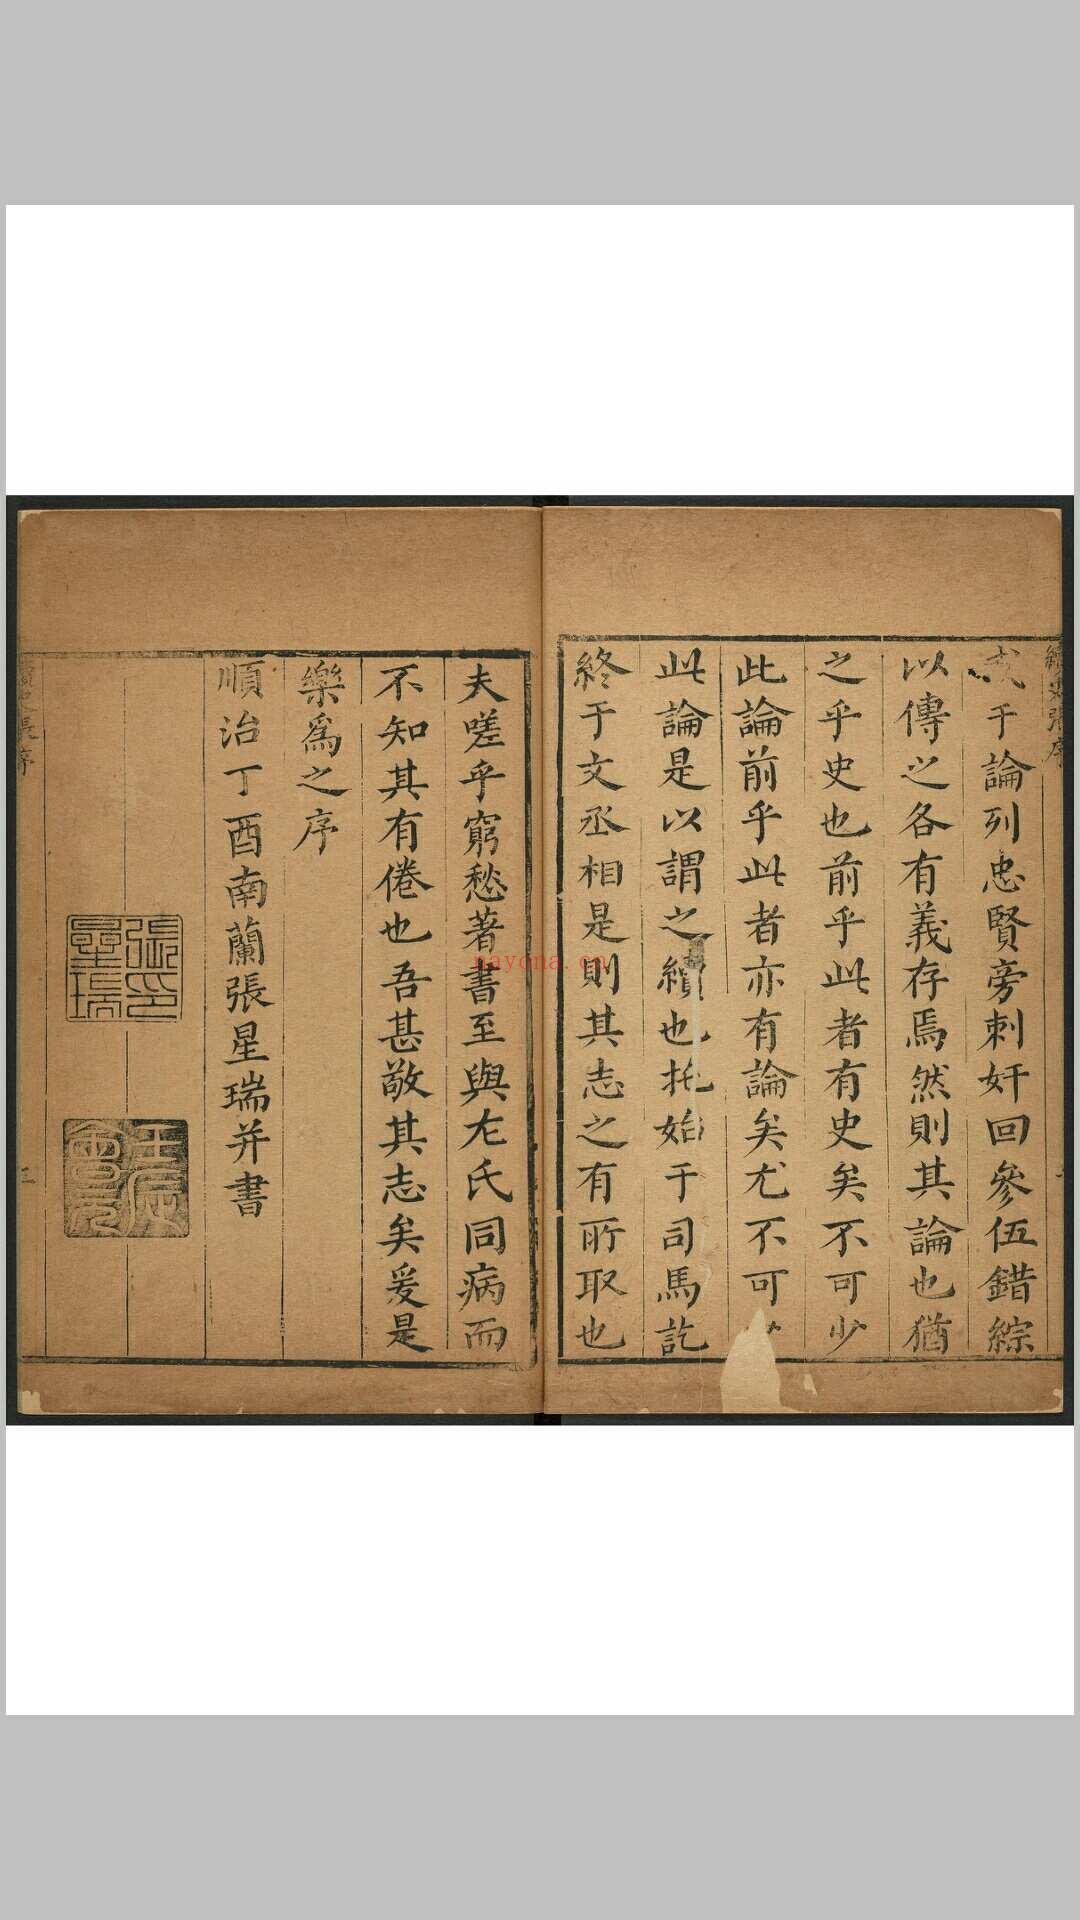 于論列忠賢旁刺奸回參伍錯綜
以傳之各有義存焉然則其論也猶
之乎史也前乎此者有史矣不可少
此論前乎此者亦有論矣尤不可
此論是以謂之續也托始于司馬訖
終于文丞相是則其志之有所取也
夫嗟乎窮愁著書至與左氏同病而
不知其有倦也吾甚敬其志矣爰是
樂為之序
順治丁酉南蘭張星瑞并書
張印星瑞
nayona.cn